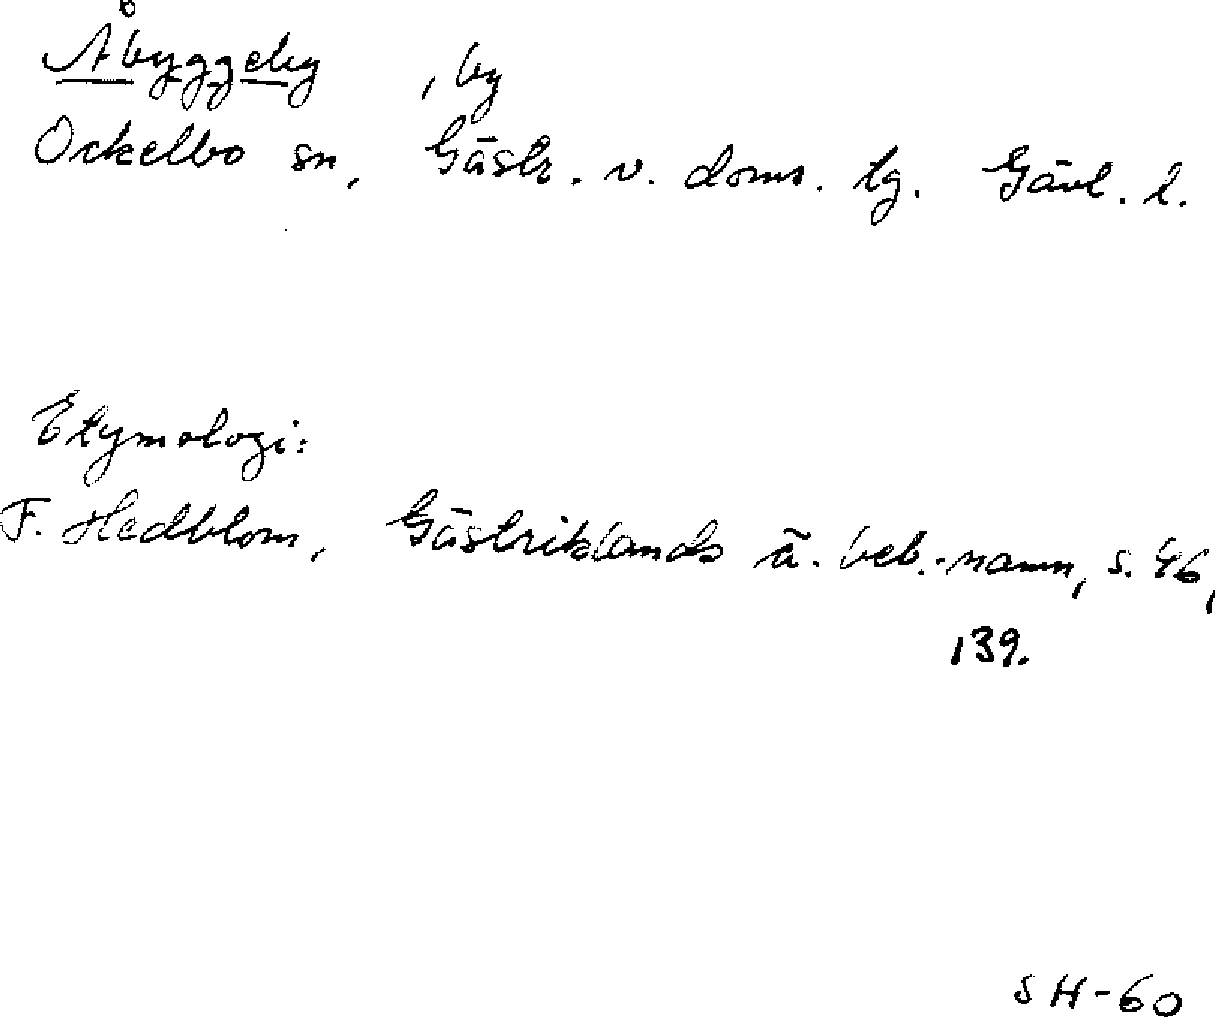 Åbyggeby , by
Ockelbo sn, Gästr. v. doms. tg. Gävl. l.
Etymologi:
F. Hedblom, Gästriklands ä. beb.-namn, s. 46,
139.
SH-60